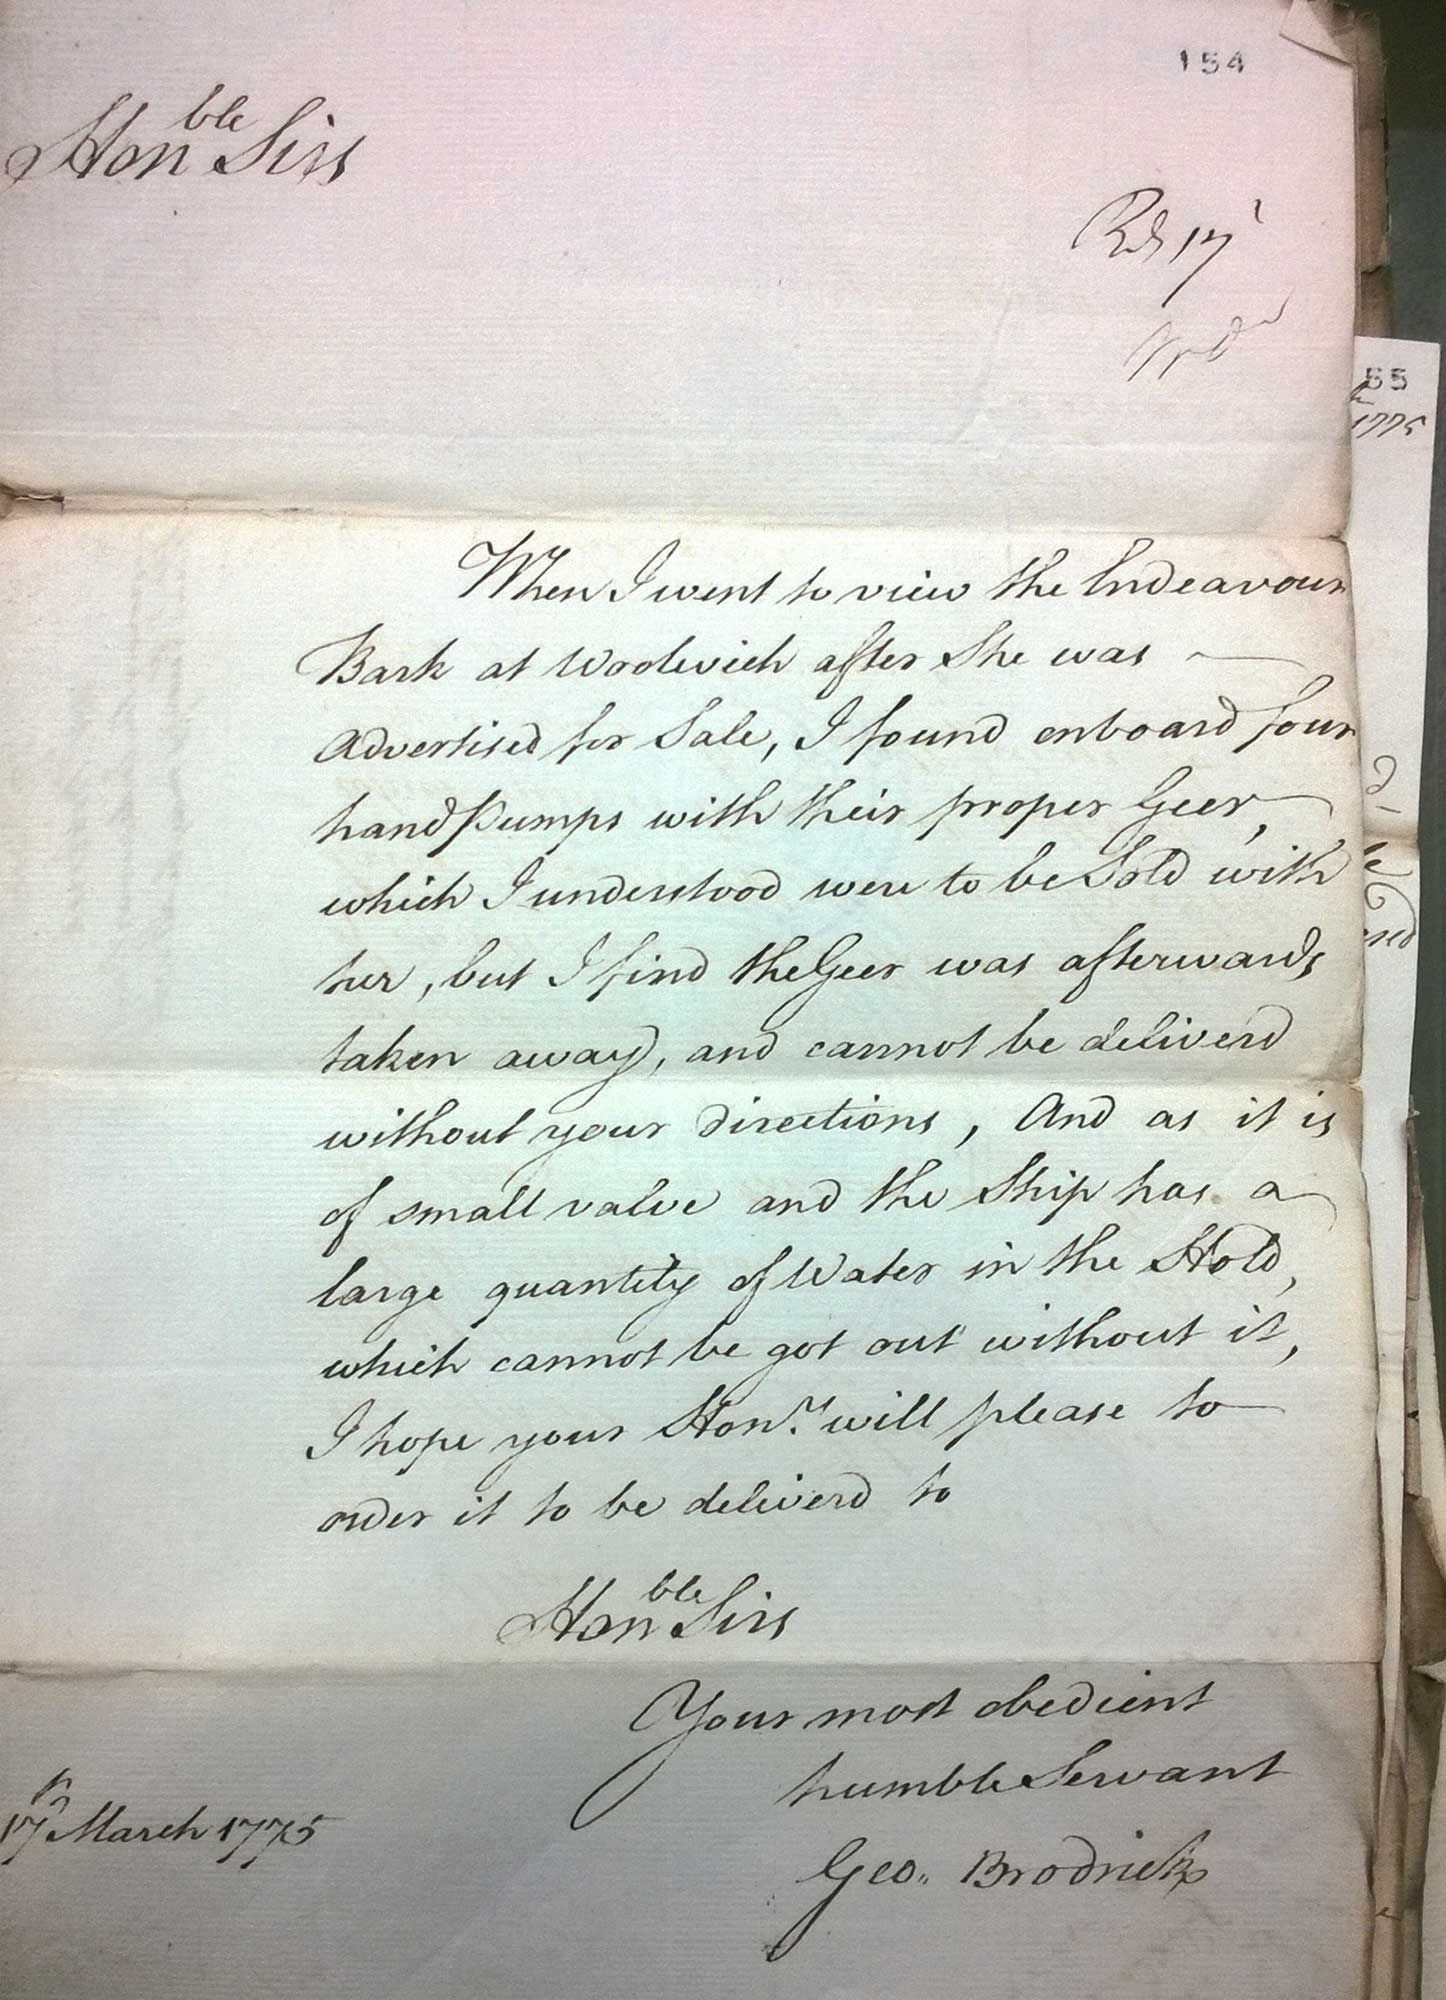 154
Honble Sirs
Rd 17
55
1775
When I went to view the Endeavour
Bark at Woolwich after She was
Advertised for Sale, I found onboard four
hand Pumps with their proper Geer,
which I understood were to be Sold with
her, but I find the Geer was afterwards
taken away, and cannot be deliverd
without your directions, And as it is
of small value and the Ship has a
large quantity of Water in the Hold,
which cannot be got out without it,
I hope your Honrs will please to
order it to be deliverd to
Honble Sirs
Your most obedient
humble Servant
17th March 1775
Geo. Brodrick